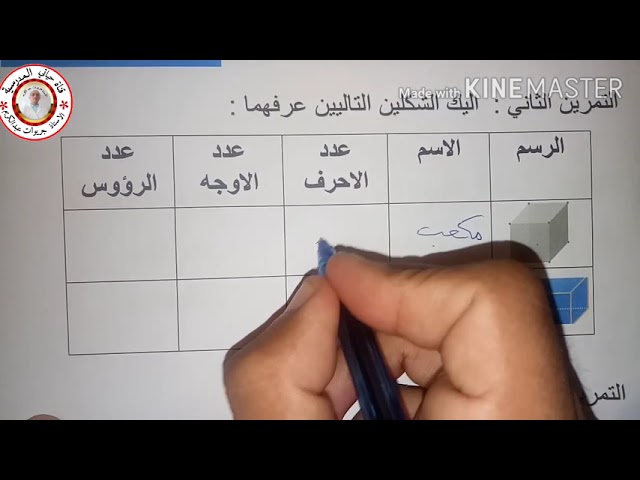 قناة حياتي المدرسية
الاستاذ جريوات عبدالكريم
Made with KINEMASTER
التمرين الثاني : اليك الشكلين التاليين عرفهما :
الرسم الاسم عدد الاحرف عدد الاوجه عدد الرؤوس
مكعب
التمر